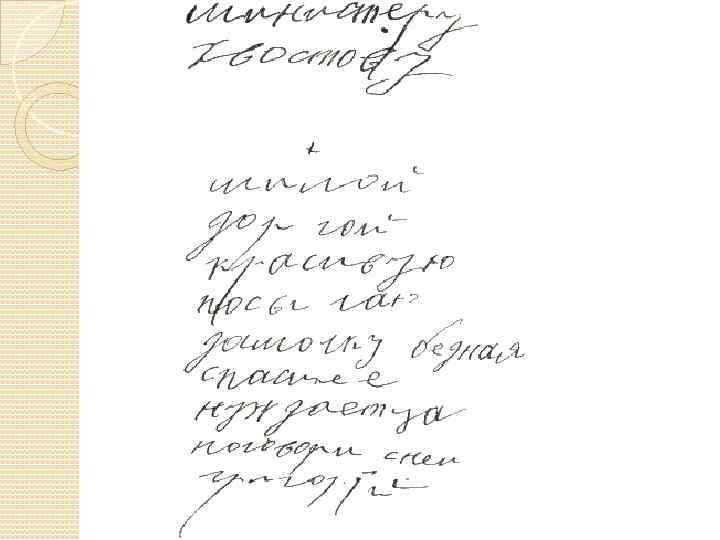 министеру
хвостову
+
милой
дор гой
красивую
посы лаю
дамочку бедная
спасие е
нуждаетца
поговори сней
григорий